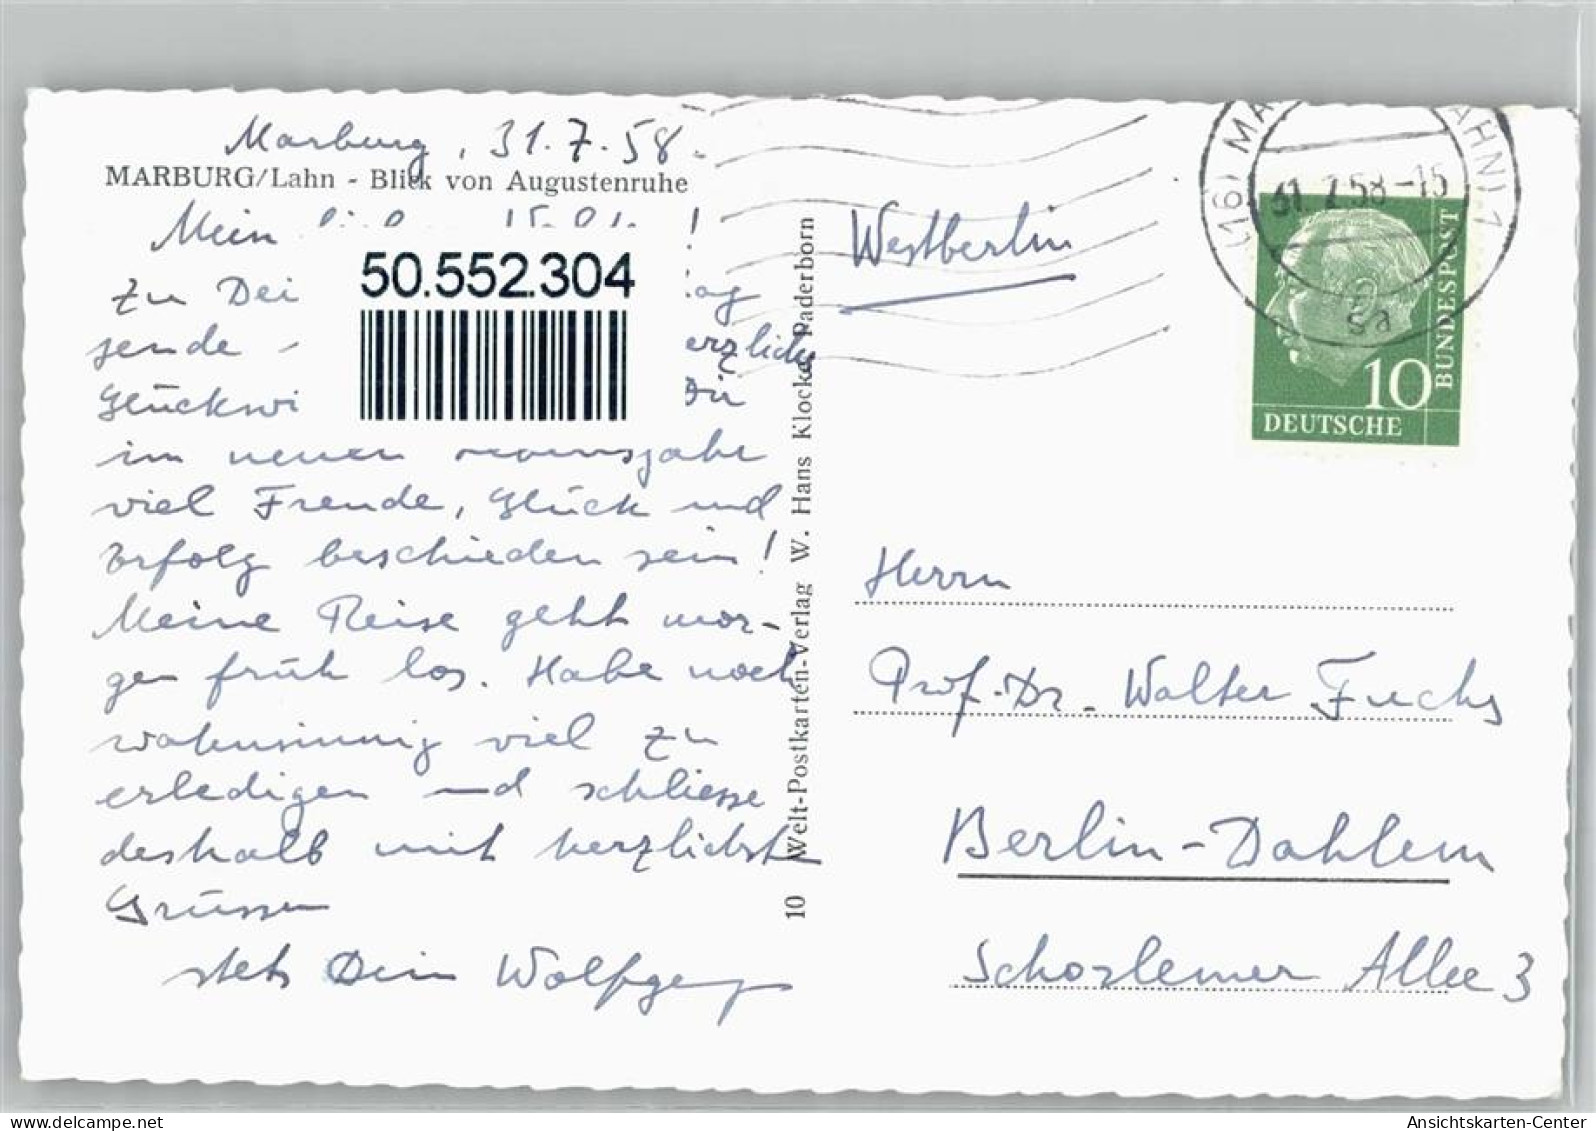 Marburg, 31.7.58.
MARBURG/Lahn - Blick von Augustenruhe
Mein !
50.552.304
zu Dei
sende erzliche
Glückwü Dir
im neuen Lebensjahr
viel Freude, Glück und
Erfolg beschieden sein!
Meine Reise geht mor-
gen früh los. Habe noch
wahnsinnig viel zu
erledigen und schliesse
deshalb mit herzlichsten
Grüssen
stets Dein Wolfgang
10 Welt-Postkarten-Verlag W. Hans Klocke, Paderborn
Westberlin
(16) MA AHN) 1
31.7.58-15
sa
10
BUNDESPOST
DEUTSCHE
Herrn
Prof. Dr. Walter Fuchs
Berlin-Dahlem
Schorlemer Allee 3
50552304
Ansichtskarten-Center